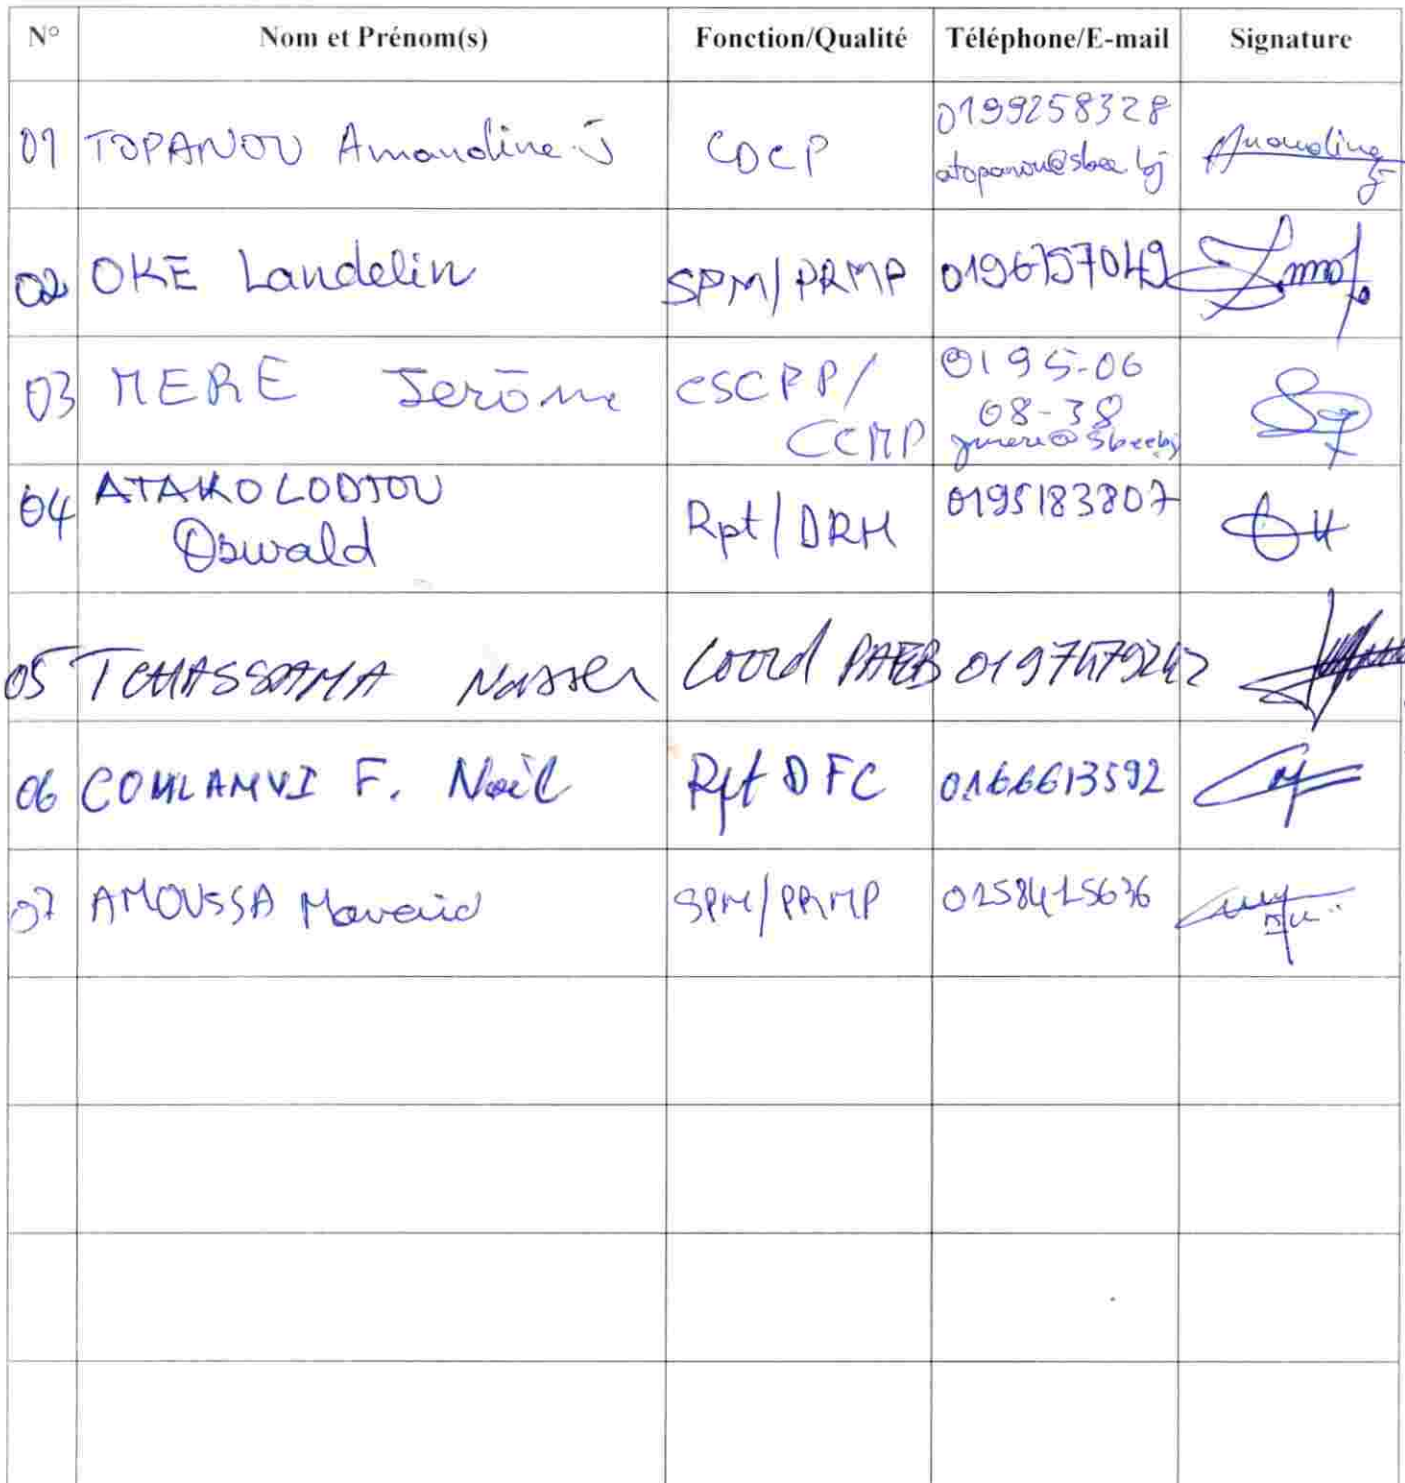 N° Nom et Prénom(s) Fonction/Qualité Téléphone/E-mail Signature
01 TOPANOU Amandine J COCP 0199258328
atopanou@sbee.bj Amandine J
02 OKE Landelin SPM/PRMP 0196757049
03 MERE Jerôme CSCPP/ 0195-06
CCMP 08-38
jmere@sbee.bj
04 ATAKOLODJOU Rpt/DRH 0195183807
Oswald
05 TCHASSAMA Nasser Coord PAEB 0197479242
06 COMLANVI F. Noël Rpt DFC 0166613592
07 AMOUSSA SPM/PRMP